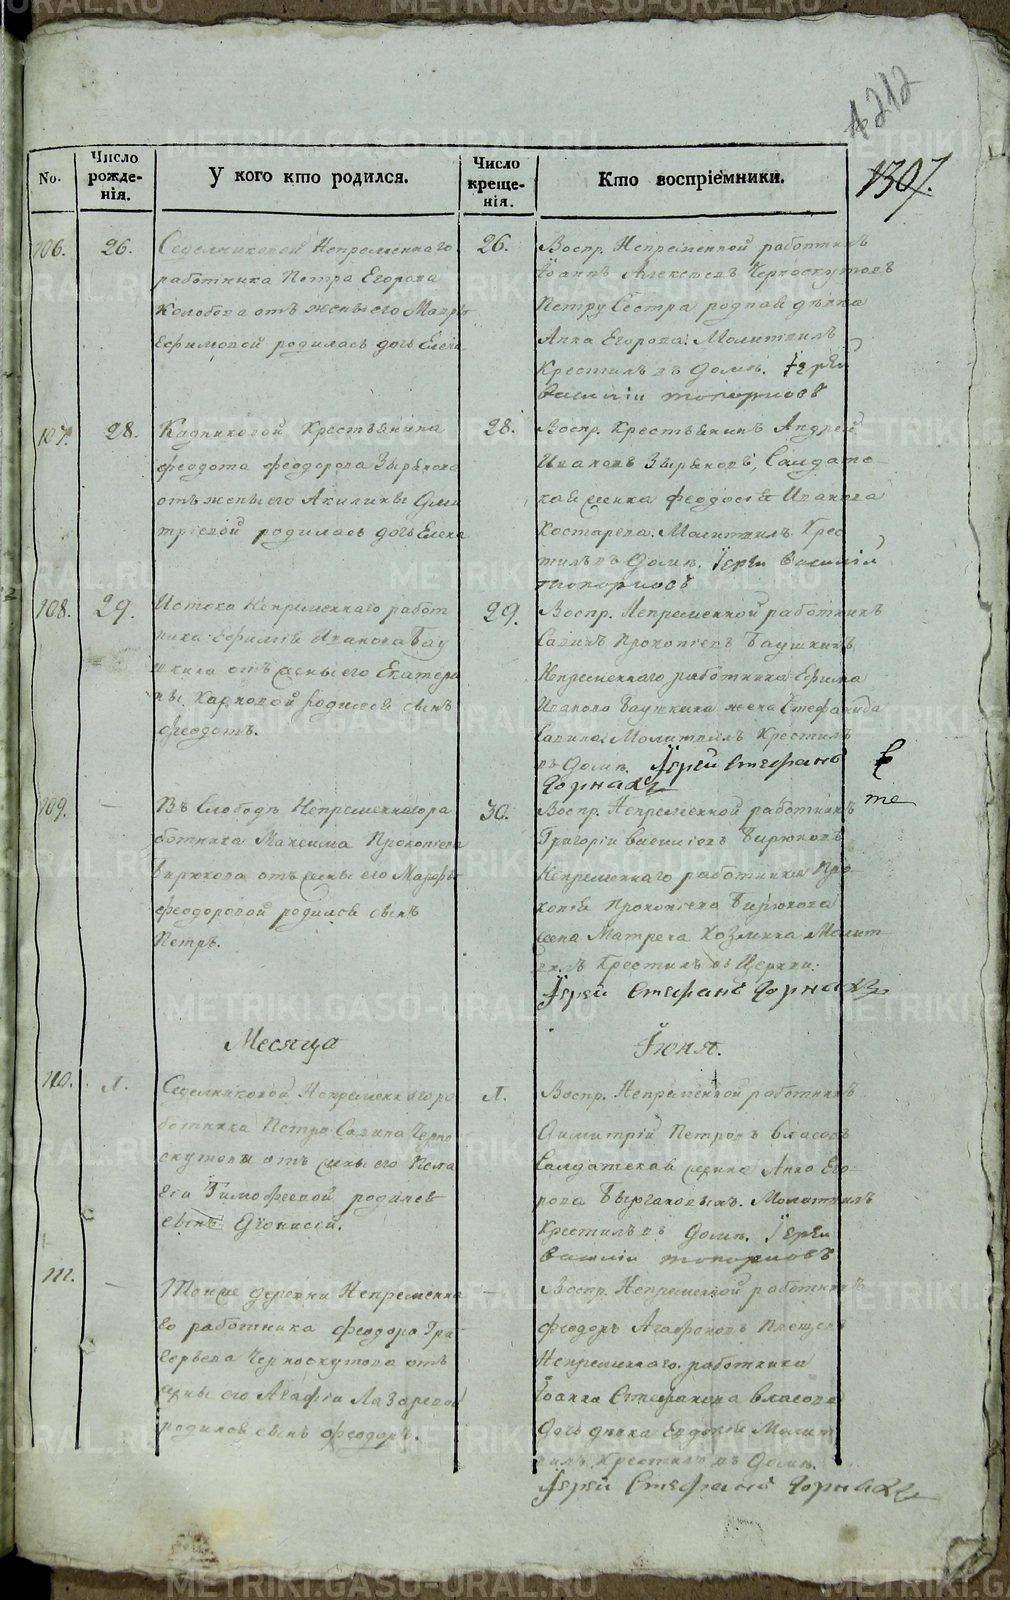 212
1307.
No.
Число рожде-нія.
У кого кто родился.
Число креще-нія.
Кто воспріемники.
106.
26.
Седелниковой Непременнаго
работника Петра Егорова
Колобова отъ жены его Мавры
Ефимовой родилась дочь Елена
26.
Воспр. Непременной работникъ
Іоаннъ Алексѣевъ Черноскутовъ
Петру Сестра родная дѣвка
Анна Егорова: Молитвилъ
Крестилъ въ Домѣ. Іерей
Василіи Топорковъ
107.
28.
Кадниковой Крестьянина
феодота феодорова Зырянова
отъ жены его Акилины Дми
тріевой родилась дочь Елена
28.
Воспр. Крестьянинъ Андрей
Ивановъ Зыряновъ, Салдатс
кая женка феодосія Иванова
Костарева. Молитвилъ Крес
тилъ въ Домѣ. Іерей Василій
Топорковъ
108.
29.
Истока Непременнаго работ
ника Ефимія Иванова Бау
шкина отъ жены его Екатери
ны Карповой родился сынъ
феодотъ.
29.
Воспр. Непременной работникъ
Савинъ Прокопіевъ Баушкинъ
Непременнаго работника Ефима
Иванова Баушкина жена Стефанида
Савина: Молитвилъ Крестилъ
въ Домѣ. Іерей Стефанъ
109.
—
Въ Слободѣ Непременнагора
ботника Максима Прокопіева
Бирюкова отъ жены его Марфы
феодоровой родился сынъ
Петръ.
30.
Воспр. Непременной работникъ
Григорій Василіевъ Бирюковъ
Непременнаго работника Про
копія Прокопіева Бирюкова
жена Матрена Козмина Молит
вилъ Крестилъ въ Церкви:
Іерей Стефанъ
Месяца
Іюня.
110.
1.
Седелниковой Непременнагора
ботника Петра Савина Черно
скутова отъ жены его Пела
геи Тимофеевой родился
сынъ Діонисій.
1.
Воспр. Непременной работникъ
Димитрій Петровъ Власовъ
Салдатская женка Анна Его
рова Молитвилъ
Крестилъ въ Домѣ. Іерей
Василіи Топорковъ
111.
—
Тойже деревни Непременна
го работника феодора Гри
горьева Черноскутова отъ
жены его Агафіи Лазаревой
родился сынъ феодоръ.
—
Воспр. Непременной работникъ
феодоръ Агафоновъ
Непременнаго работника
Іоанна Стефанова Власова
Дочь дѣвка Евдокія Молит
вилъ Крестилъ въ Домѣ.
Іерей Стефанъ
METRIKI.GASO-URAL.RU